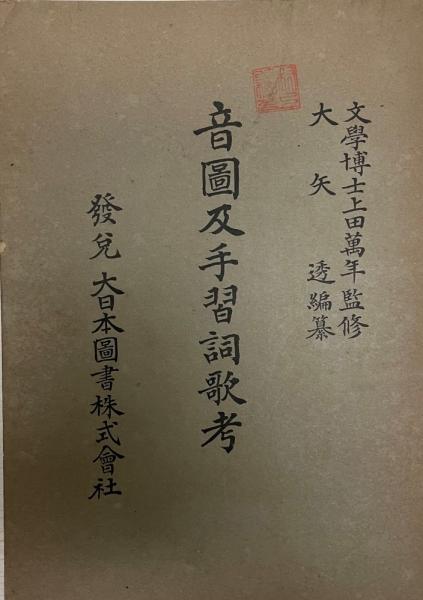 文學博士上田萬年監修
大矢透編纂
音圖及手習詞歌考
發兌 大日本圖書株式會社